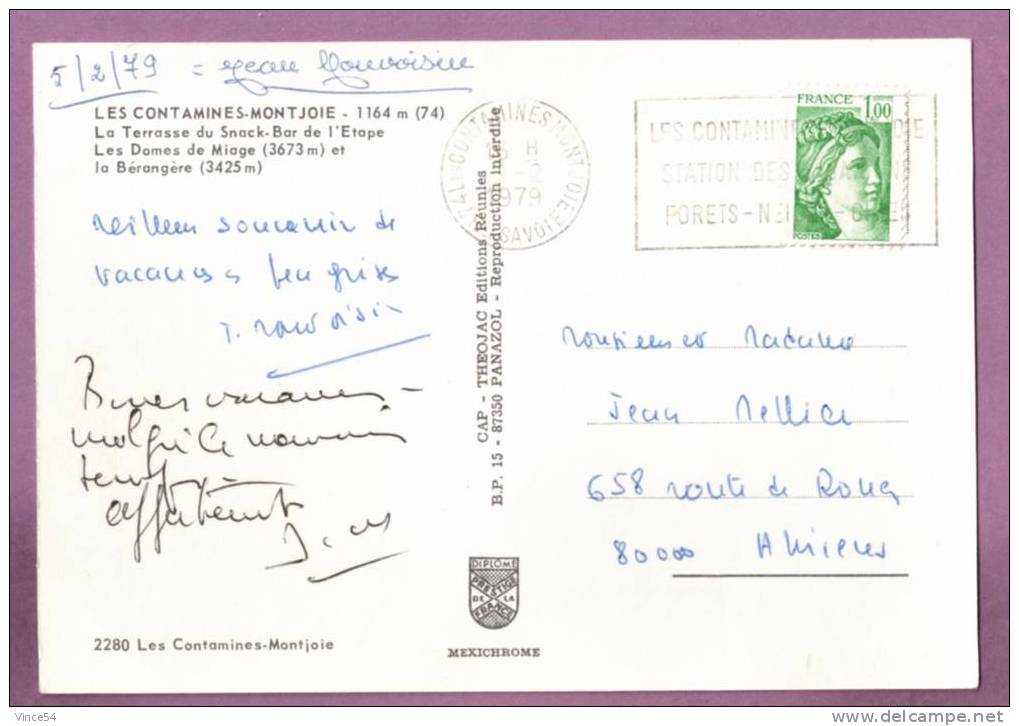 5/2/79 = Jean Mauvoisin
LES CONTAMINES-MONTJOIE - 1164 m (74)
La Terrasse du Snack-Bar de l'Etape
Les Domes de Miage (3673 m) et
la Bérangère (3425 m)
74 LES CONTAMINES MONTJOIE
H
-2
1979
SAVOIE
LES CONTAMINES
STATION DES
FORETS-NEI
FRANCE 1,00
POSTES
Meilleur souvenir de
vacances peu grises
J. Mauvoisin
Bonnes vacances -
malgré le mauvais
temps
J.M
CAP - THEOJAC Editions Réunies
B.P. 15 - 87350 PANAZOL - Reproduction interdite
Monsieur et Madame
Jean
658 route de Rouen
80000 Amiens
DIPLOME
PRESTIGE
DE LA
FRANCE
2280 Les Contamines-Montjoie
MEXICHROME
Vince54
www.delcampe.net